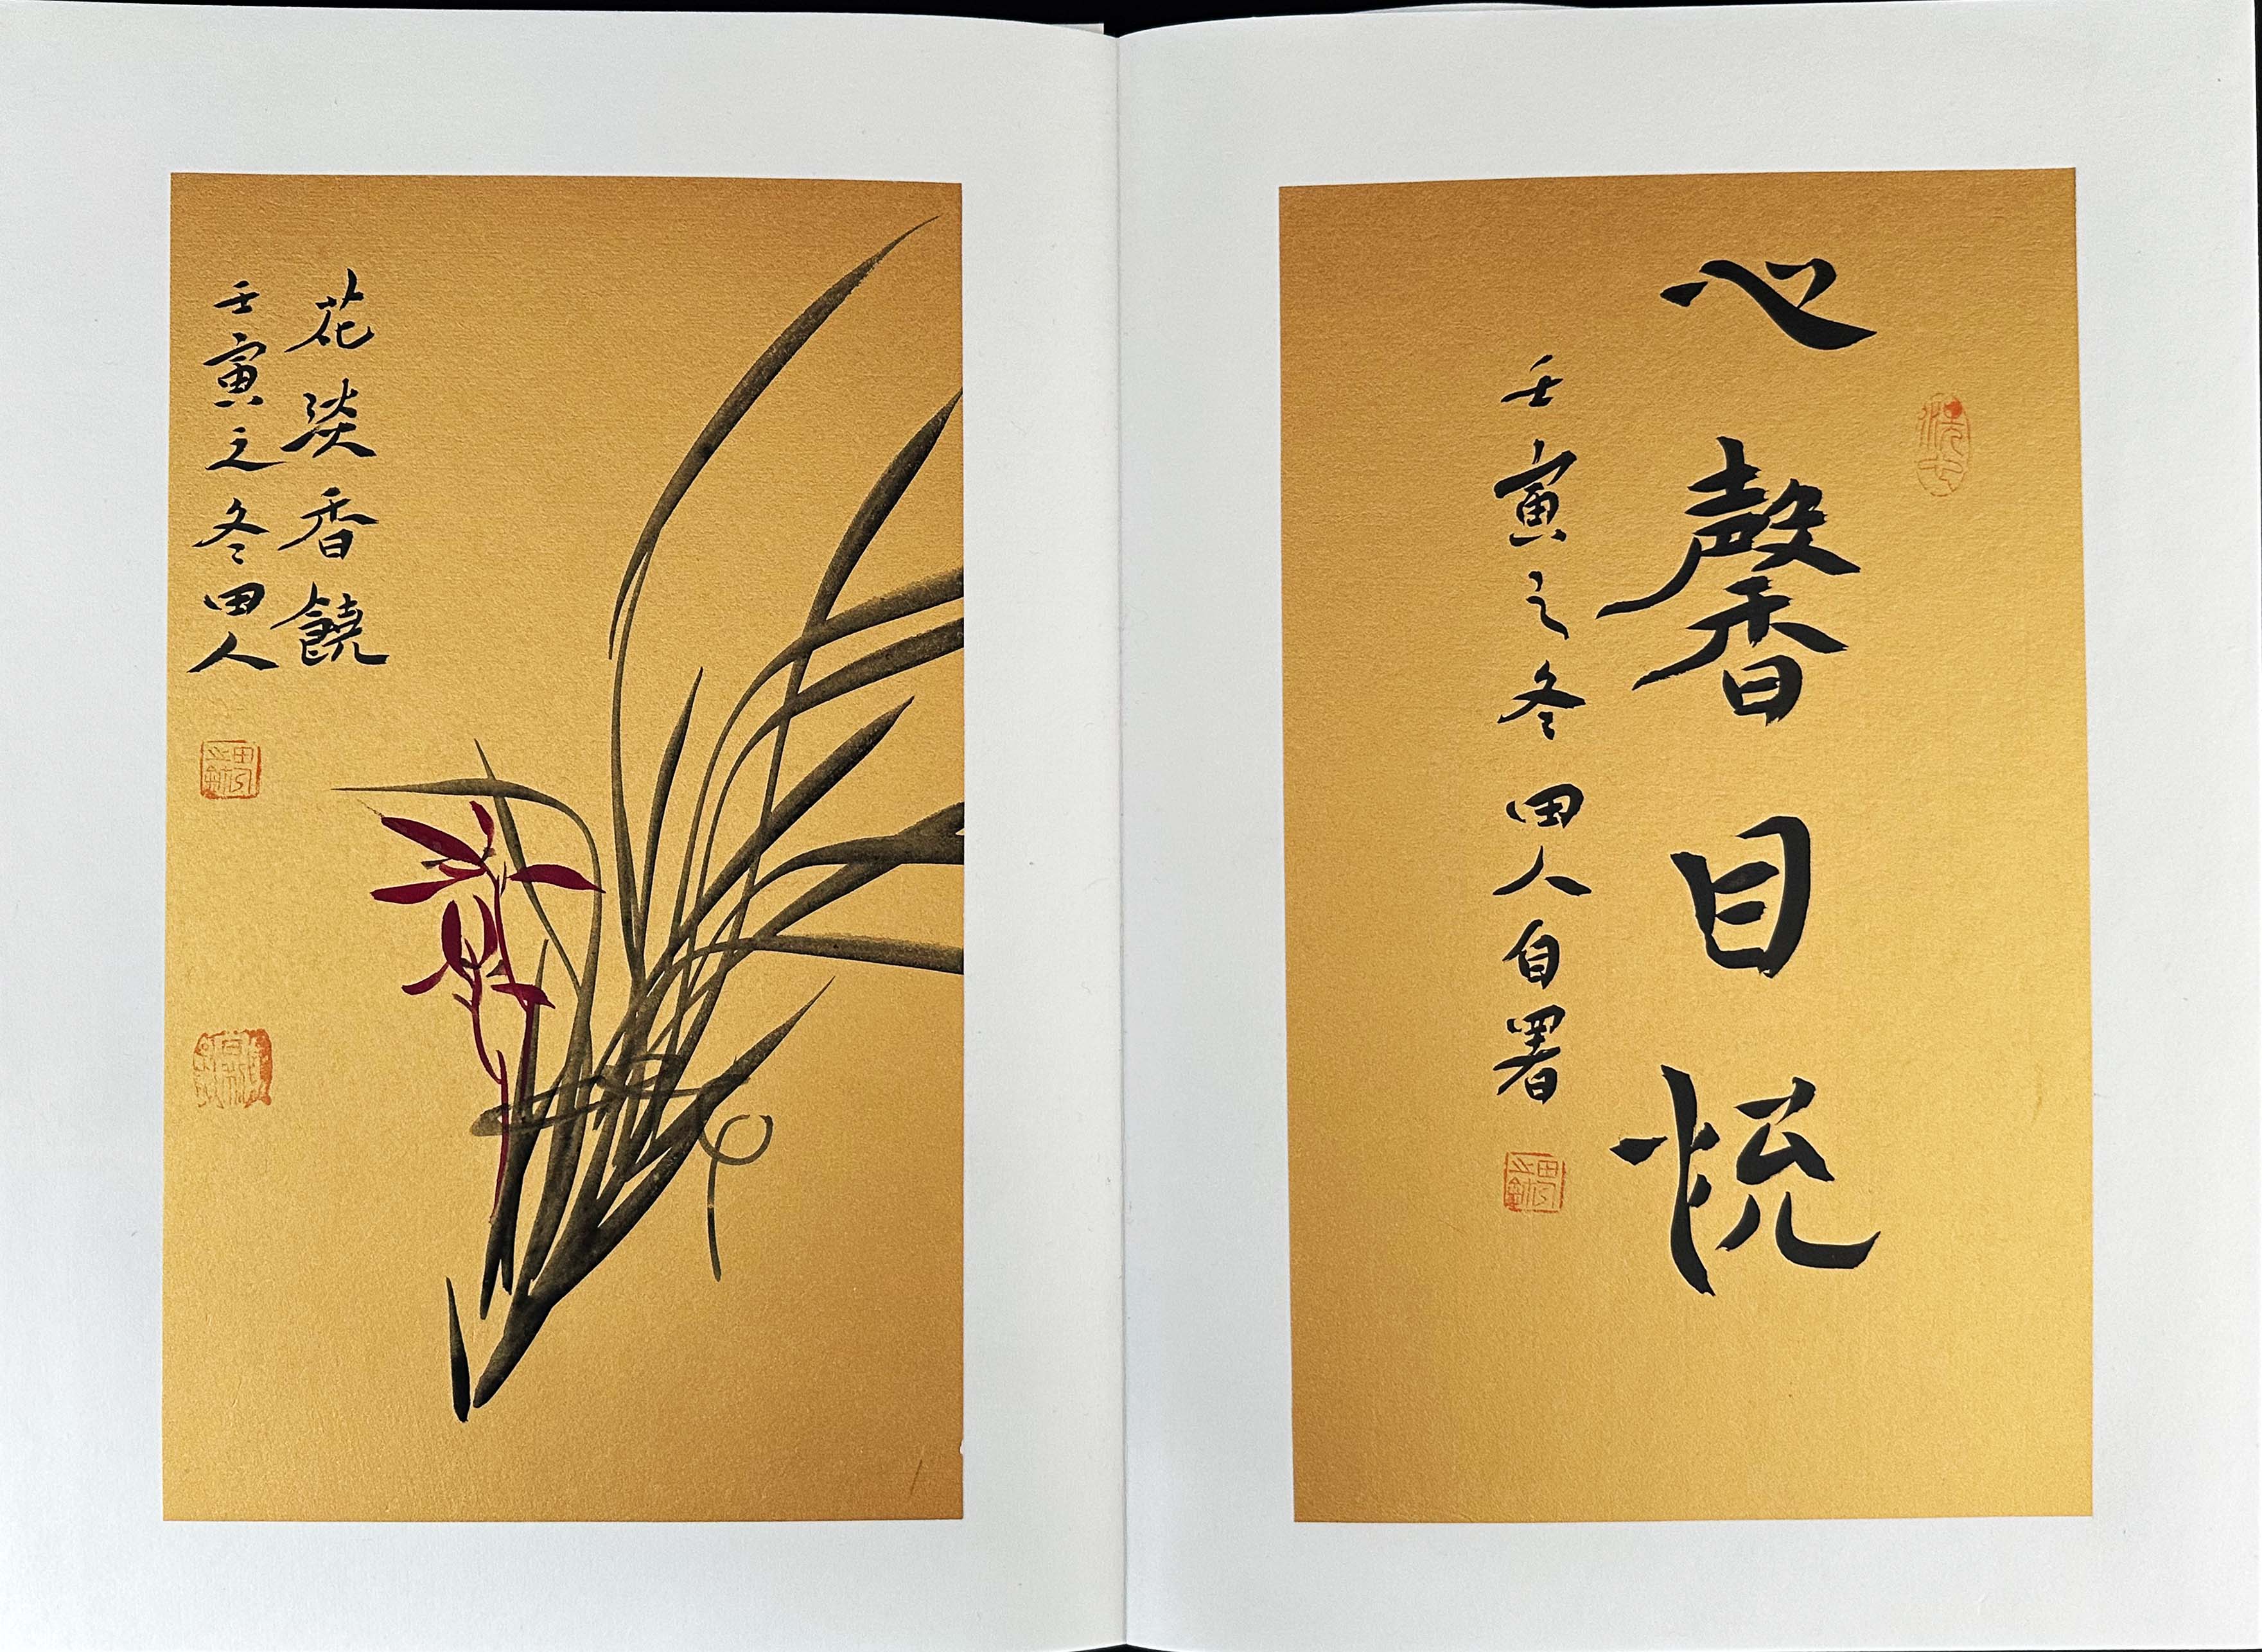 心馨目悦
壬寅之冬田人自署
花淡香饒
壬寅之冬田人